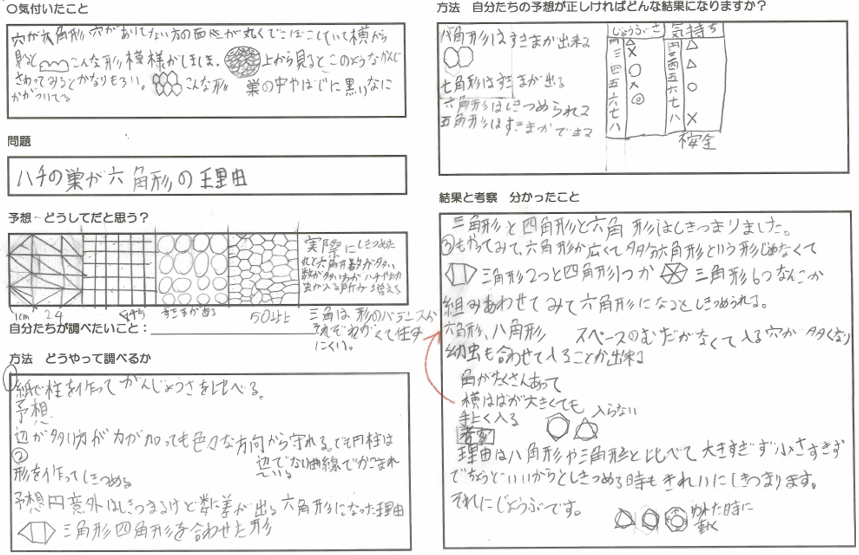 〇気付いたこと
穴が六角形 穴があいてない方の面は丸くでこぼこしていて横から
見ると こんな形 模様がしましま、 上から見るとこのようなかんじ
さわってみるとかなりもろい。 こんな形 巣の中やはじに黒いなに
かがついてる
問題
ハチの巣が六角形の理由
予想 どうしてだと思う？
実際にしきつめた
1cm 24 すきまがある 50以上
三角は形のバランスが
それぞれ て住み
にくい。
自分たちが調べたいこと：
方法 どうやって調べるか
①紙で柱を作ってがんじょうさを比べる。
予想
辺が多い方が力が加っても色々な方向から守れる。でも円柱は
辺でない曲線でかこまれ
ている
②
形を作ってしきつめる
予想 円意外はしきつまるけど数に差が出る 六角形になった理由
三角形四角形を合わせた形
方法 自分たちの予想が正しければどんな結果になりますか？
八角形はすきまが出来る
七角形はすきまが出る
六角形はしきつめられる
五角形はすきまができる
じょうぶさ 気持ち
円 △ 円 △
三 × 三
四 〇 四 △
五 × 五 〇
六 ◎ 六
七 七
八 八 ×
安全
結果と考察 分かったこと
三角形と四角形と六角形はしきつまりました。
③もやってみて、六角形が広くて多分六角形という形じゃなくて
三角形2つと四角形1つか 三角形6つなんこか
組みあわせてみて六角形になるとしきつめられる。
六角形、八角形 スペースのむだがなくて入る穴が多くなり
幼虫も合わせて入ることが出来る
角がたくさんあって
横はばが大きくても
上手く入る 入らない
考察
理由は八角形や三角形と比べて大きすぎず小さすぎず
でちょうどいいからとしきつめる時もきれいにしきつまります。
それにじょうぶです。
われた時に
動く